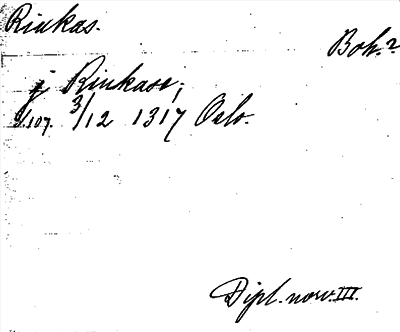 Rinkas.
Boh.?
j Rinkase;
S/107. 3/12 1317 Oslo.
Dipl. norv. III.